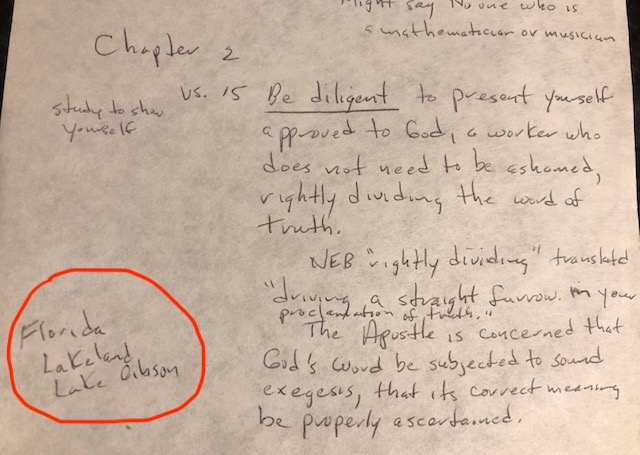 Might say No one who is
a mathematician or musician
Chapter 2
study to show
yourself
vs. 15 Be diligent to present yourself
approved to God, a worker who
does not need to be ashamed,
rightly dividing the word of
truth.
NEB "rightly dividing" translated
"driving a straight furrow in your
proclamation of truth."
The Apostle is concerned that
God's word be subjected to sound
exegesis, that its correct meaning
be properly ascertained.
Florida
Lakeland
Lake Gibson